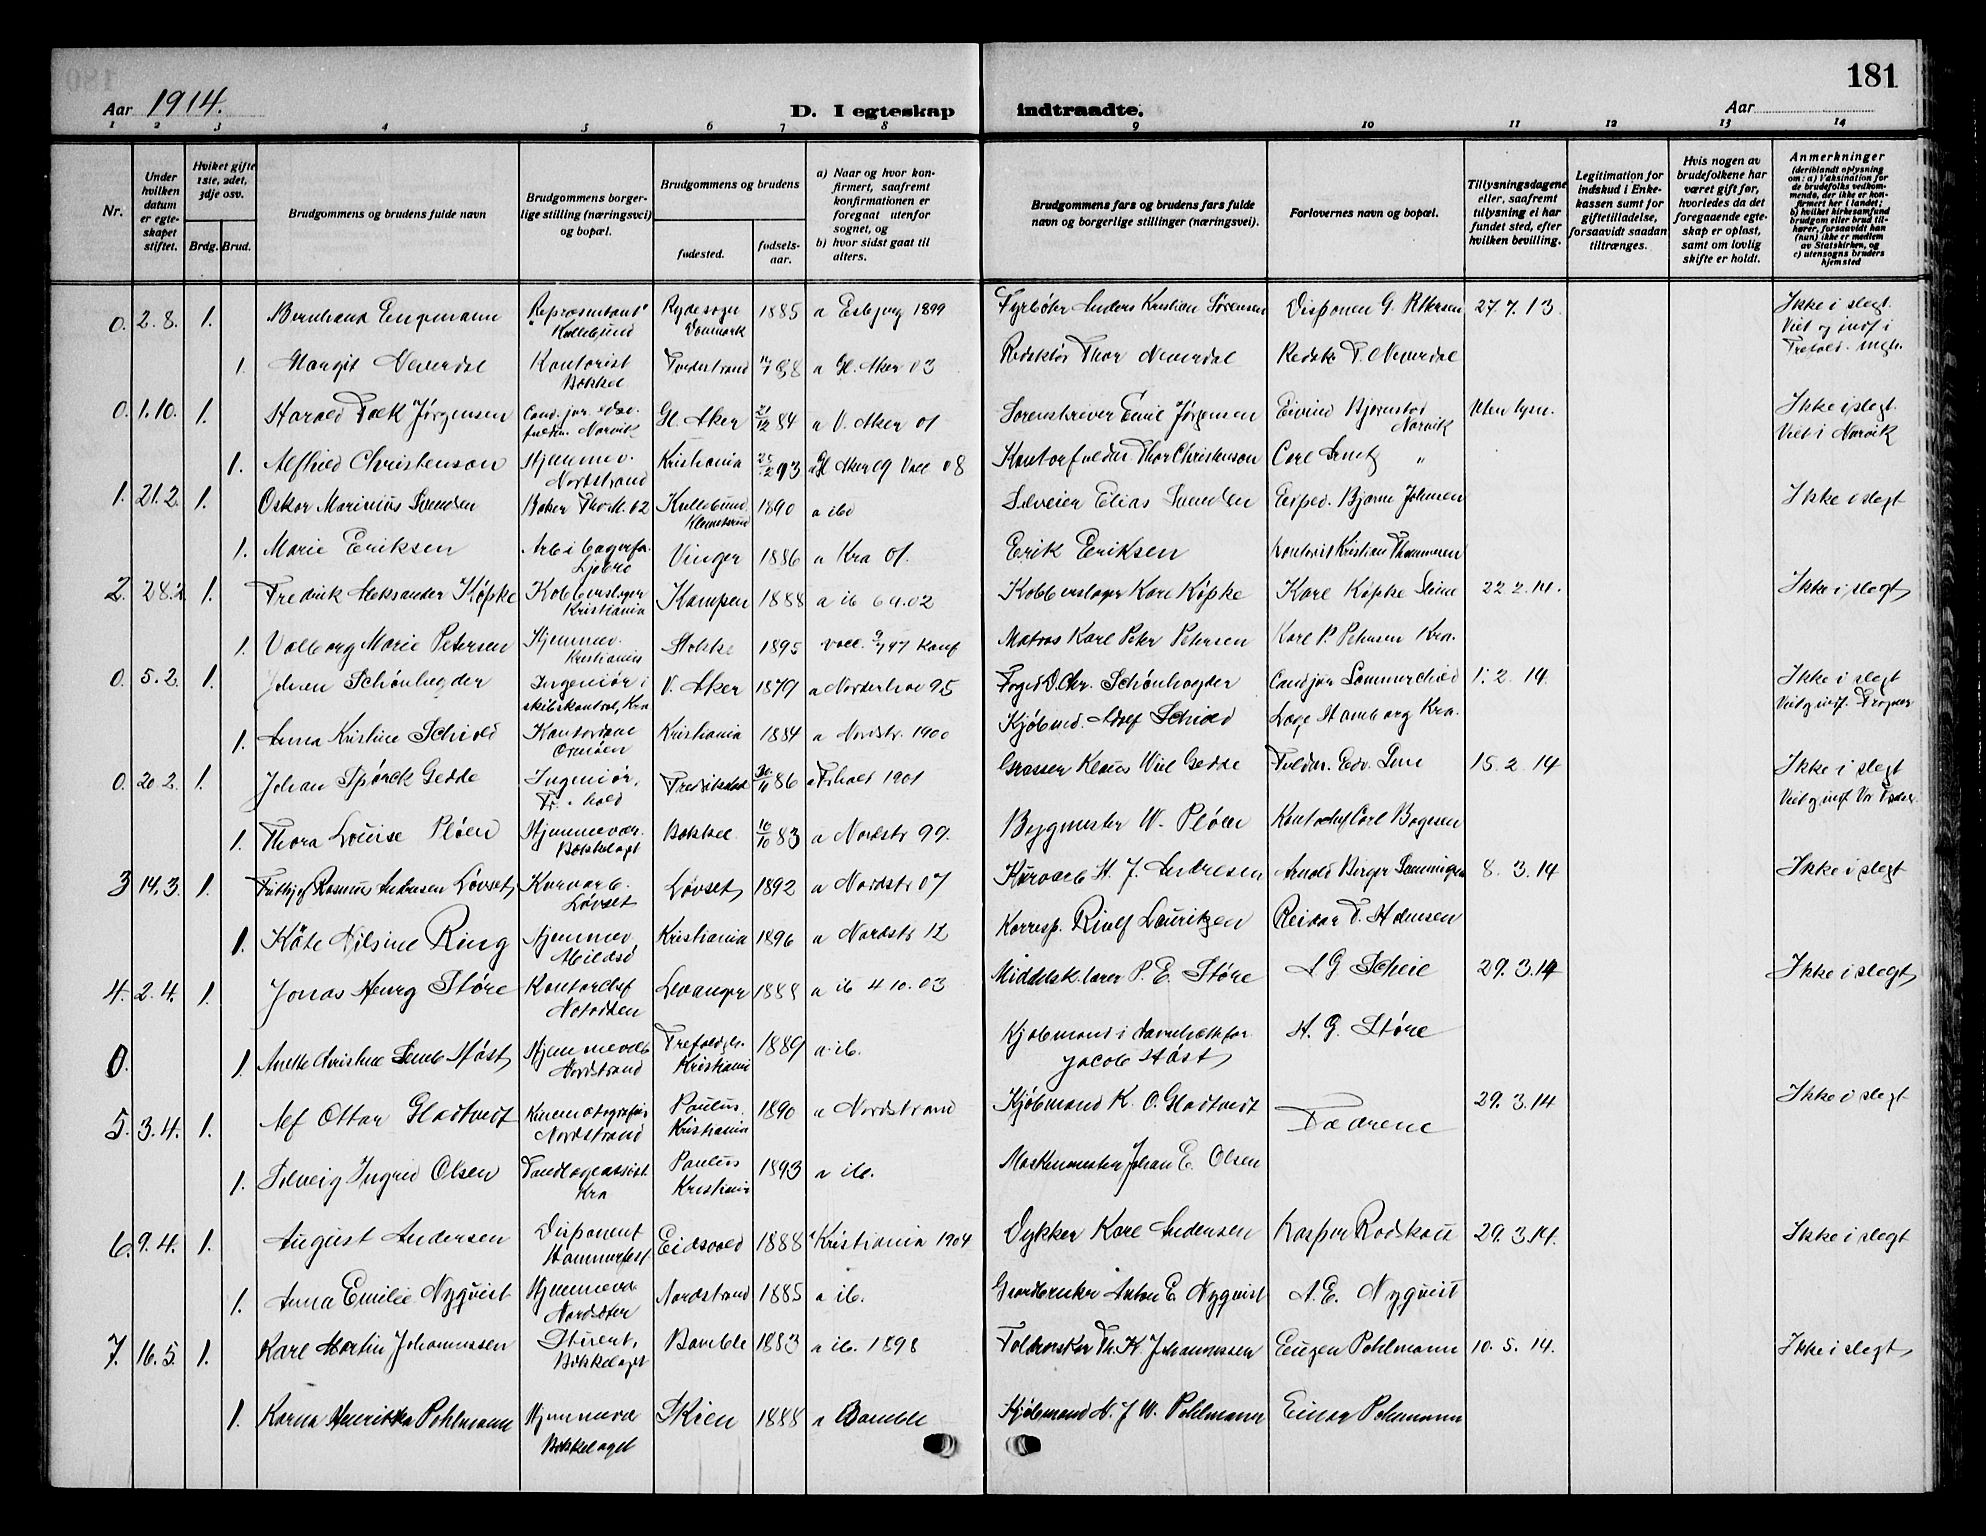 181
Aar 1914.
D. I egteskap indtraadte.
Aar
1 2 3 4 5 6 7 8 9 10 11 12 13 14
Nr.
Under hvilken datum er egteskapet stiftet.
Hvilket gifte 1ste, 2det, 3dje osv.
Brdg. Brud.
Brudgommens og brudens fulde navn
Brudgommens borgerlige stilling (næringsvei) og bopæl.
Brudgommens og brudens
fødested.
fødselsaar.
a) Naar og hvor konfirmert, saafremt konfirmationen er foregaat utenfor sognet, og
b) hvor sidst gaat til alters.
Brudgommens fars og brudens fars fulde navn og borgerlige stillinger (næringsvei).
Forlovernes navn og bopæl.
Tillysningsdagene eller, saafremt tillysning ei har fundet sted, efter hvilken bevilling.
Legitimation for indskud i Enkekassen samt for giftetilladelse, forsaavidt saadan tiltrænges.
Hvis nogen av brudefolkene har været gift før, hvorledes da det foregaaende egteskap er opløst, samt om lovlig skifte er holdt.
Anmerkninger (deriblandt oplysning om: a) Vaksination for de brudefolks vedkommende, der ikke er konfirmert her i landet; b) hvilket kirkesamfund brudgom eller brud tilhører, forsaavidt han (hun) ikke er medlem av Statskirken, og c) utensogns bruders hjemsted
0. 2.8. 1. Bernhard Engmann Repræsentant Kullebund Danmark 1885 a Esbjerg 1899 Fyrbøter Anders Kristian Sørensen Disponen G. 27.7.13. Ikke i slegt.
1. Margit Neverdal Kontorist Bækkel a Gl. Aker 03 Redaktør Thor Neverdal Redaktø T. Neverdal
0. 1.10. 1. Harald Falk Jørgensen Cand. jur. Narvik Gl. Aker 21/12 84 a V. Aker 01 Sorenskriver Emil Jørgensen Eivind Bjørnstad Narvik Uten lysn. Ikke i slegt. Viet i Narvik
1. Alfhild Christenson Hjemmev. Nordstrand Kristiania 93 Thor Christenson Carl "
1. 21.2. 1. Oskar Marinius Svendsen Kullebund Klemetsrud 1890 a ibd Elias Svendsen Exped. Bjarne Johnsen Ikke i slegt
1. Marie Eriksen Ljabro Vinger 1886 a Kra 01. Erik Eriksen Kontorist Kristian Thommesen
2. 28.2 1. Fredrik Aleksander Köpke Kobberslager Kristiania Kampen 1888 a ib 02 Kobberslager Karl Köpke Karl Köpke 22.2.14. Ikke i slegt
1. Valborg Marie Petersen Hjemmev. Kristiania 1895 Matros Karl Peter Petersen Karl P. Petersen Kra.
0. 5.2. 1. Johan Schönheyder Ingeniør i skibskontrol, Kra V. Aker 1879 a Norderhov 95 Foged O. Chr. Schönheyder Cand jur Sommerschield 1.2.14. Ikke i slegt
1. Anna Kristine Schiold Kontordame Ormøen Kristiania 1884 a Nordstr. 1900 Kjøbmd. Adolf Schiold Læge Hamborg Kra.
0. 20.2. 1. Johan Spörck Gedde Ingeniør, Fr.hald 30/11 86 a F.hald 1901 Grosser Klaus Wiel Gedde Fuldm. Edv. 15.2.14 Ikke i slegt
1. Thora Louise Plöen Hjemmevær. Bækkelaget Bækkel. 16/10 83 a Nordstr 99. Bygmester W. Plöen Kontorchef Carl Bogesen
3 14.3. 1. Fridtjof Rasmus Andresen Løvset, Kurvarb. Løvset Løvset, 1892 a Nordstr 07 Kurvarb H. J. Andresen Arnold Birger 8.3.14 Ikke i slegt
1. Käte Nilsine Ring Hjemmev. Kristiania 1896 a Nordstr 12 Korresp. Lauritzen Reidar T. Hansen
4. 2.4. 1. Jonas Henry Störe Kontorchef Notodden Levanger 1888 a ib 4 10.03 Middelsk.lærer P. E. Störe A G Scheie 29.3.14 Ikke i slegt,
0. 1. Anette Christine Semb Höst, Hjemmevær Nordstrand Trefoldigh. Kristiania 1889 a ib. Kjøbmand i Jacob Höst, H. G. Störe
5. 3.4. 1. Alf Ottar Gladtvedt Nordstrand Paulus, Kristiania 1890 a Nordstrand Kjøbmand K. O. Gladtvedt Fædrene 29.3.14 Ikke i slegt
1. Solveig Ingrid Olsen Tandlægeassist. Kra Paulus Kristiania 1893 a ib. Maskinmester Johan E. Olsen
6. 9.4. 1. August Andersen Disponent Hammerfest Eidsvold 1888 a Kristiania 1904 Dykker Karl Andersen Kasper Rodskou 29.3.14. Ikke i slegt
1. Anna Emilie Nyquist Hjemmevær Nordstr Nordstrand 1885 a ib. Gaardbruker Anton E. Nyquist A. E. Nyquist
7. 16.5. 1. Karl Martin Johannessen Student, Bækkelaget Bamble 1883 a ib. 1898 Th. K. Johannessen Eugen Pohlmann 10.5.14. Ikke i slegt,
1. Karna Henrikka Pohlmann Hjemmevæ Bækkelaget Skien 1888 a Bamble Kjøbmand N. J. W. Pohlmann Einar Pohlmann